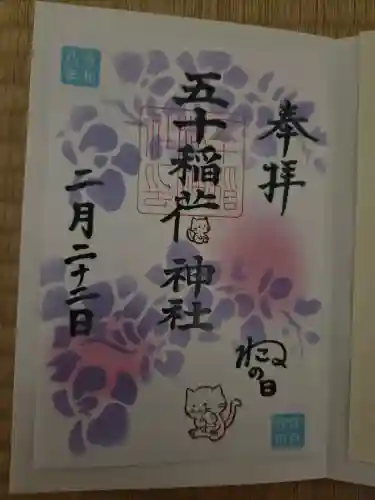 奉拝
五十稲荷神社
二月二十二日
ねこの日